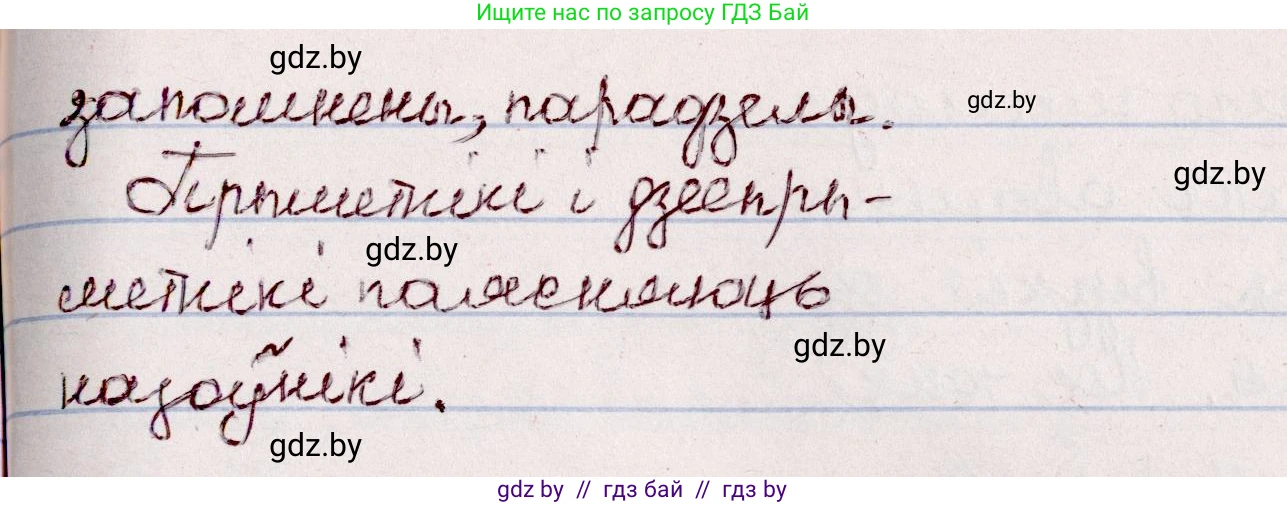 Ищите нас по запросу ГДЗ Бай
gdz.by
запомнены, парадзелы.
gdz.by
Прыметнікі і дзеепры-
gdz.by
gdz.by
метнікі паясняюць
gdz.by
назоўнікі.
gdz.by
gdz by // гдз бай // гдз by